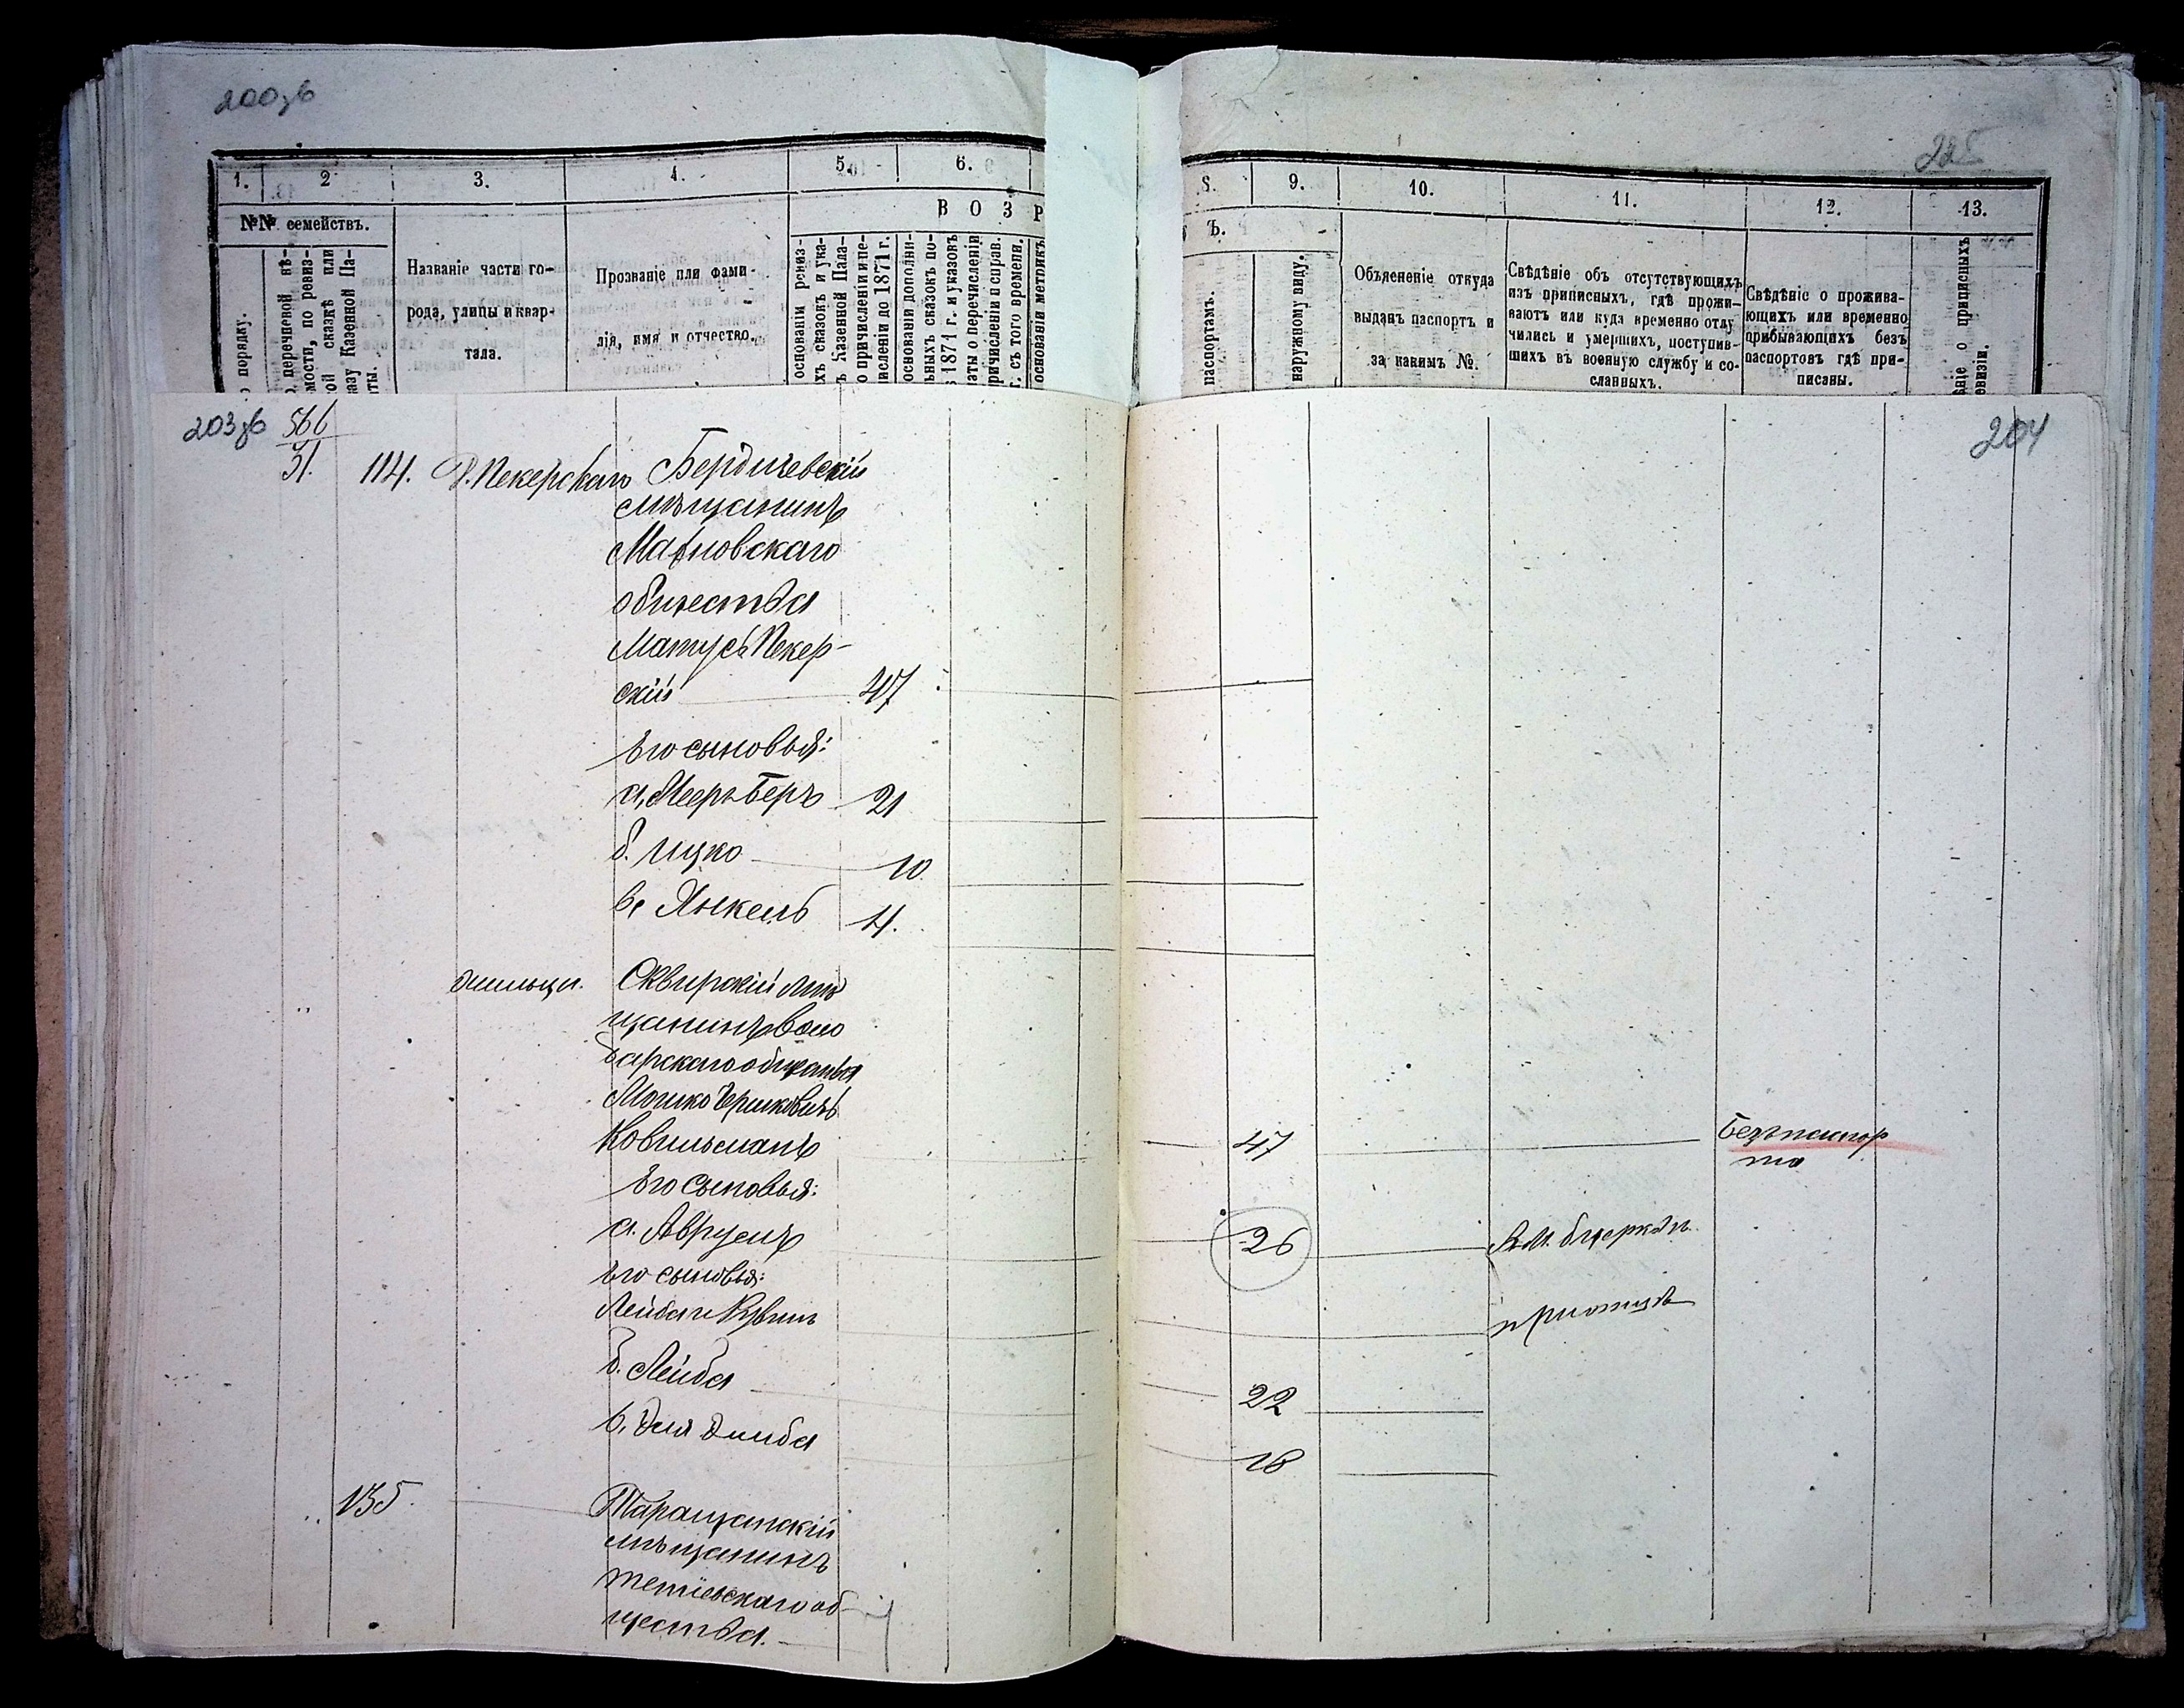 200зв
225
1. 2 3. 4. 5. 6.
8. 9. 10. 11. 12. 13.
№№ семействъ.
В О З Р
Ъ.
порядку.
перечневой вѣ-
мости, по ревиз-
ой сказкѣ или
казу Казенной Па-
ты.
Названіе части го-
рода, улицы и квар-
тала.
Прозваніе или фами-
лія, имя и отчество.
основаніи ревиз-
хъ сказокъ и ука-
ъ Казенной Пала-
о причисленіи и пе-
исленіи до 1871 г.
основаніи дополни-
ьныхъ сказокъ по-
1871 г. и указовъ
аты о перечисленіи
ричисленіи и справ.
г. съ того времени.
основаніи метрикъ
паспортамъ.
наружному виду.
Объясненіе откуда
выданъ паспортъ и
за какимъ №.
Свѣдѣніе объ отсутствующихъ
изъ приписныхъ, гдѣ прожи-
ваютъ или куда временно отлу
чились и умершихъ, поступив-
шихъ въ военную службу и со-
сланныхъ.
Свѣдѣніе о прожива-
ющихъ или временно
прибывающихъ безъ
паспортовъ гдѣ при-
писаны.
ѣніе о приписныхъ
евизіи.
203зв 566
204
51. 114. Д. Пекерскаго Бердичевскій
мѣщанинъ
Махновскаго
общества
Матусъ Пекер-
скій 47
Его сыновья:
а, Меер-Беръ 21
б. Ицко 10
в, Янкель 4.
жильцы. Сквирскій мѣ
щанинъ Воло
дарскаго общества
Мошко Гершковичъ
Ковильманъ 47 Безъ паспор
та
Его сыновья:
а. Аврумъ 26 В м. б. церкви
Его сыновья:
Лейба и
при отцѣ
б. Лейба 22
в, 18
135. Таращанскій
мѣщанинъ
Тетіевскаго об-
щества.